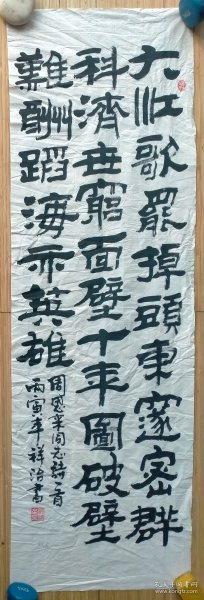 大江歌罢掉頭東邃密群
科濟世窮面壁十年圖破壁
難酬蹈海亦英雄
周恩来同志詩一首
丙寅年祥治書